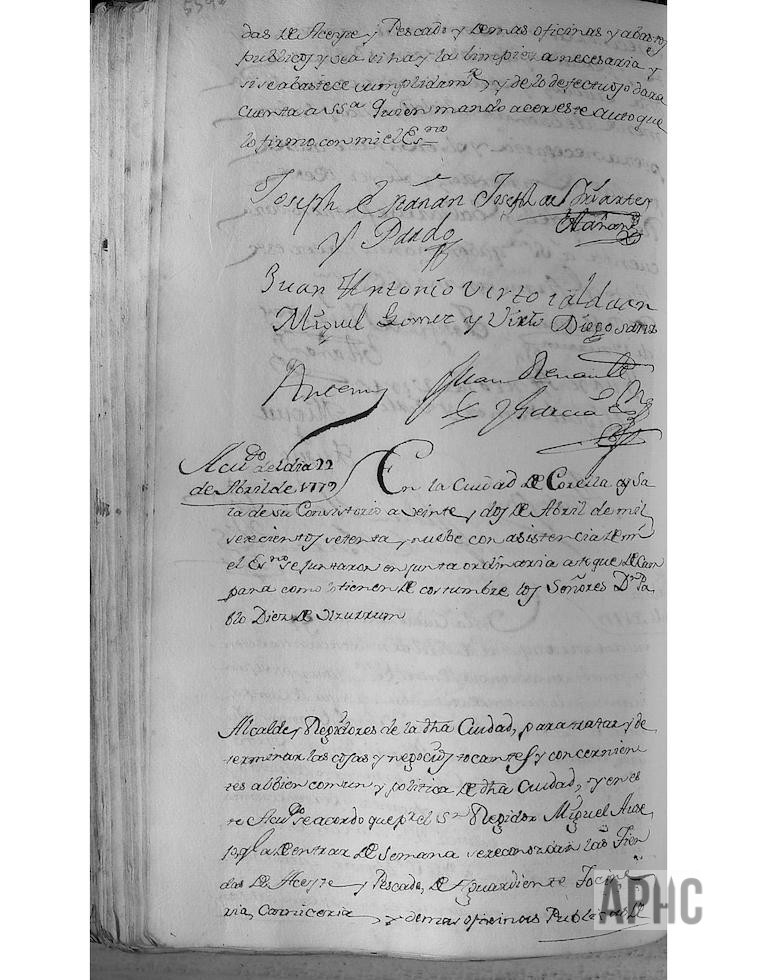 das de Aceyte, y Pescado y demas oficinas y abastos
publicos y vea si hay la limpieza necesaria y
si se abastece cumplidamte, y de lo defectuoso dara
cuenta a SSa. Quien mando acer este auto que
lo firmo con mi el Esno
Joseph Joseph de
y Pardo
Juan Antonio Virto
Miguel Gomez y Virto Diego Sanz
Antemi Juan
Garcia
Acudo del dia 22
de Abril de 1779
En la Ciudad de Corella y Sa
la de su Consistorio a veinte, y dos de Abril de mil
setecientos setenta, y nuebe con asistencia de mi
el Esno se juntaron en junta ordinaria a toque de Cam
pana como lo tienen de costumbre los Señores Dn Pa
blo Diez de Ulzurrum
Alcalde, y Regidores de la dha Ciudad, para tratar, y de
terminar las cosas y negocios tocantes y concernien
tes al bien comun y politica de dha Ciudad, y en es
te Acudo se acordo que pr el Sr Regidor Miguel
a de entrar de Semana se reconozcan las Tien
das de Aceyte, y Pescado, de Aguardiente Tocine
ria, Carniceria, y demas oficinas Publicas
APHC